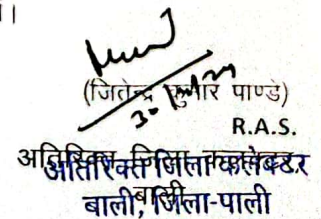 ।
(जितेन्द्र कुमार पाण्डे)
R.A.S.
अतिरिक्त जिला कलेक्टर
अतिरिक्त जिला कलेक्टर
बाली
बाली, जिला-पाली